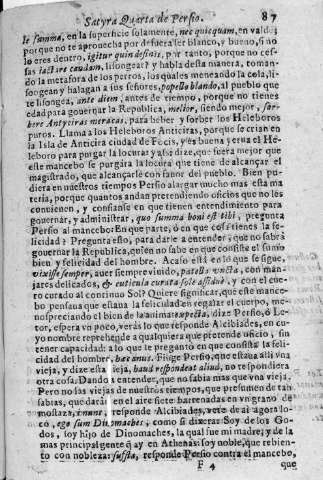 Satyra Quarta de Persio. 87
te summa, en la superficie solamente, nec quicquam, en valde;
porque no te aprouecha por defuera ser blanco, y bueno, si no
lo eres dentro, igitur quin desinis, por tanto, porque no ces-
sas iactare caudam, lisongear? y habla desta manera, toman-
do la metafora de los perros, los quales meneando la cola, li-
songean y halagan a sus señores, popello blando, al pueblo que
te lisongea, ante diem; antes de tiempo, porque no tienes
edad para gouernar la Republica, melior, siendo mejor, sor-
bere Antyciras meracas, para beber y sorber los Heleboros
puros. Llama a los Heleboros Anticiras, porque se crian en
la Isla de Anticira ciudad de Focis, y es buena yerua el He-
leboro para purgar la locura: y assi dize, que fuera mejor que
este mancebo se purgara la locura que tiene de alcançar el
magistrado, que alcançarle con fauor del pueblo. Bien pu-
diera en nuestros tiempos Persio alargar mucho mas esta ma
teria, porque quantos andan pretendiendo oficios que no les
conuienen, y consiste en que tienen entendimiento para
gouernar, y administrar, quo summa boni est tibi, pregunta
Persio al mancebo: En que parte, ò en que cosa tienes la fe-
licidad? Pregunta esto, para darle a entender, que no sabrà
gouernar la Republica, quien no sabe en que consiste el sumo
bien y felicidad del hombre. Acaso està en lo que se sigue,
vixisse semper, auer siempre viuido, patella vncta, con man-
jares delicados, & cuticula curata sole assiduo, y con el cue-
ro curado al continuo Sol? Quiere significar, que este mance-
bo pensaua que estaua la felicidad en regalar el cuerpo, me-
nospreciando el bien de la anima: expecta, dize Persio, ò Le-
tor, espera vn poco, veràs lo que responde Alcibiades, en cu-
yo nombre reprehende a qualquiera que pretende oficio, sin
tener capacidad: a lo que te preguntò en que consistia la feli-
cidad del hombre, hæc anus. Finge Persio, que estaua alli vna
vieja, y dize esta vieja, haud respondeat aliud, no respondiera
otra cosa. Dando a entender, que no sabia mas que vna vieja.
Pero no las viejas de nuestros tiempos, que presumen de tan
sabias, que daràn en el aire siete barrenadas en vn grano de
mostaza, i nunc, responde Alcibiades, vete de aì agora lo-
co, ego sum Dinomaches, como si dixera: Soy de los Go-
dos, soy hijo de Dinomaches, la qual fue mi madre, y de la
mas principal gente q̃ ay en Athenas: soy noble, que rebien-
to con nobleza: suffla, responde Persio contra el mancebo,
F 4 que